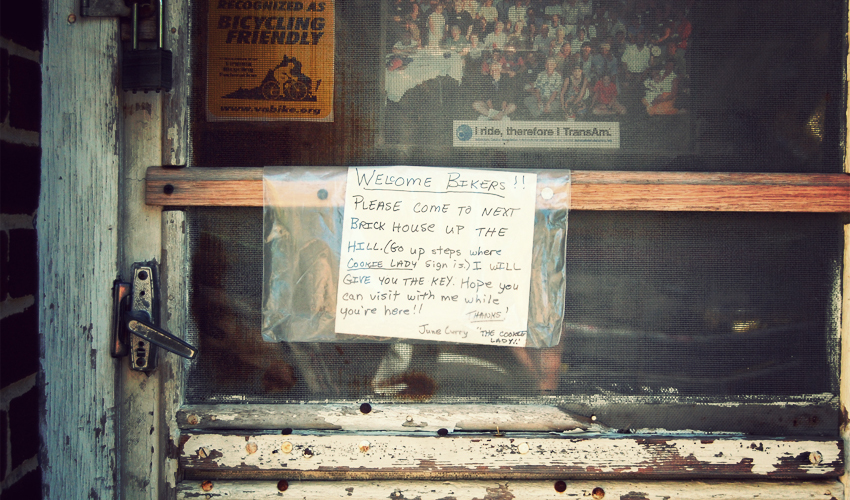 RECOGNIZED AS
BICYCLING
FRIENDLY
www.vabike.org
I ride, therefore I TransAm.
WELCOME BIKERS!!
PLEASE COME TO NEXT
BRICK HOUSE UP THE
HILL. (Go up steps where
COOKIE LADY sign is.) I WILL
GIVE YOU THE KEY. Hope you
can visit with me while
you're here!! THANKS!
June Curry "THE COOKIE
LADY!"